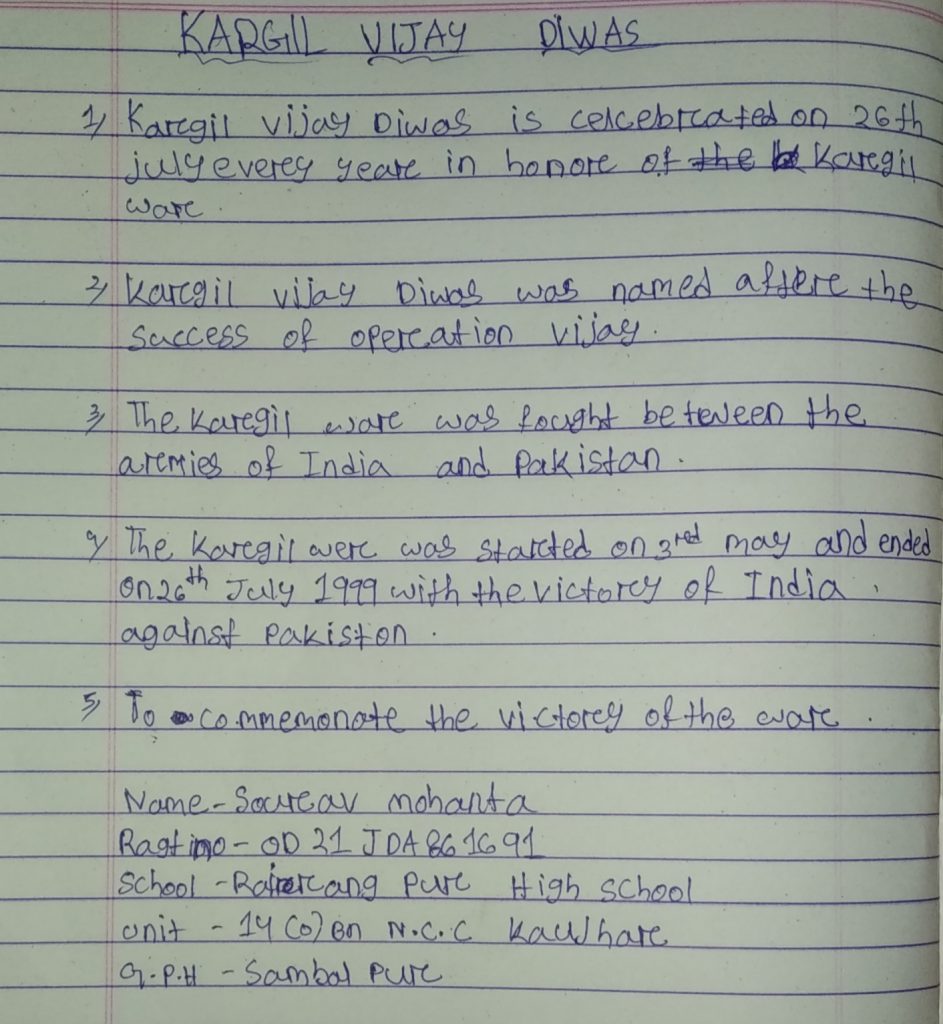 KARGIL VIJAY DIWAS
1) Karcgil vijay Diwas is celcebrcated on 26th
july everey yeare in honore of the Karegil
ware.
2) Karcgil vijay Diwas was named aftere the
success of opercation vijay.
3) The Karegil ware was fought between the
aremies of India and Pakistan.
4) The Karegil were was starcted on 3red may and ended
on 26th July 1999 with the victorcy of India.
against Pakiston.
5) To commemonate the victorey of the ware.
Name - Soureav mohanta
Ragt no - OD 21 JDA861691
School - purc High school
unit - 14 (O) Bn N.C.C
G.P.H - Sambal purc